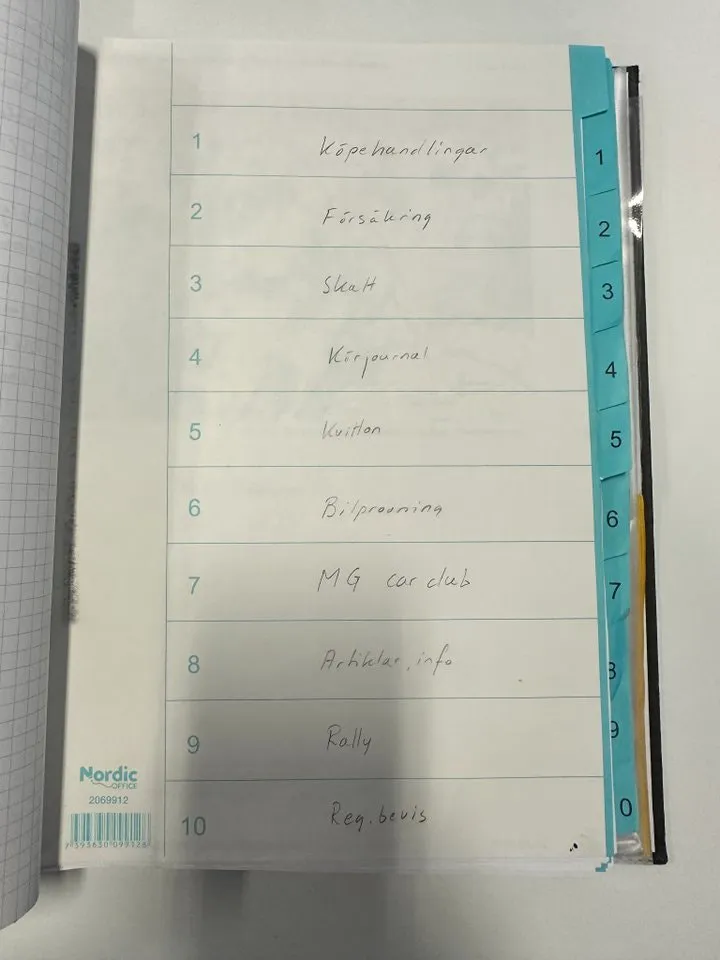 1 Köpehandlingar 1
2 Försäkring 2
3 Skatt 3
4 Körjournal 4
5 Kvitton 5
6 Bilprovning 6
7 MG car club 7
8 Artiklar, info 8
9 Rally 9
10 Reg.bevis 0
Nordic
OFFICE
2069912